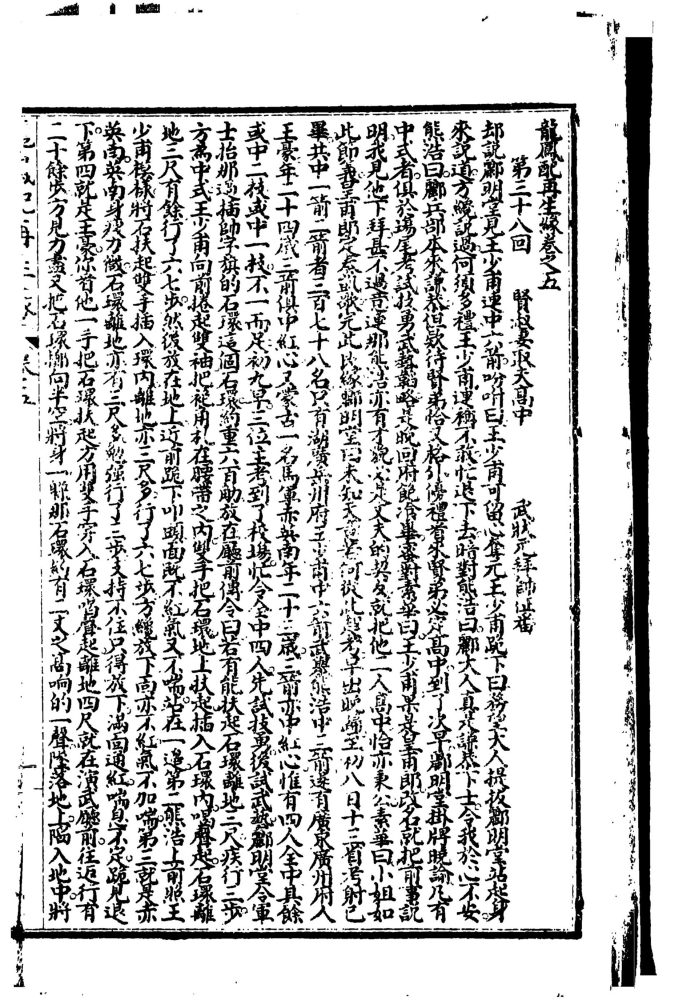 龍鳳配再生緣卷之五
第三十八回 賢淑妻取夫高中 武狀元拜師征番
却說酈明堂見王少甫連中六箭吩咐曰王少甫可留心奪元王少甫跪下曰務望大人提拔酈明堂站起身
來說道方纔說過何須多禮王少甫連稱不敢忙退下去暗對熊浩曰酈大人真是謙恭下士令我於心不安
熊浩曰酈兵部本來謙恭但欵待賢弟恰又格外優禮看來賢弟必定高中到了次早酈明堂掛牌曉諭凡有
中式者俱於場尾考試技勇武藝韜略是晚回府飽飡畢密對素華曰王少甫果是皇甫郎改名就把前事說
明我見他下拜甚不過意連那熊浩亦有才貌必是丈夫的契友就把他二人高中恰亦秉公素華曰小姐如
此節義皇甫郎之忝武歡元此段緣酈明堂曰未知天意若何從此起考早出晚歸至初八日十三省考射已
畢其中一箭二箭者三百七十八名只有湖廣岳州府王少甫中六箭武舉熊浩中三箭遂有廣東廣州府人
王豪年二十四歲三箭俱中紅心又蒙古一名馬軍赤英南年二十三歲三箭亦中紅心惟有四人全中其餘
或中二枝或中一枝不一而足初九早三位主考到了校場忙令全中四人先試技勇後試武藝酈明堂令軍
士抬那過插帥字旗的石環這個石環約重六百觔放在廳前傳令曰若有能扶起石環離地三尺疾行三步
方為中式王少甫向前捲起雙袖把袍角扎在腰帶之內雙手把石環地上扶起插入石環內喝聲起石環離
地三尺有餘行了六七步然後放在地上近前跪下叩頭面既不紅氣又不喘站在一邊第二熊浩上前照王
少甫模樣將石扶起雙手插入環內離地亦三尺多行了六七步方纔放下面亦不紅氣不加喘第三就是赤
英南英南身疲力微石環離地亦有三尺多勉強行了三步支持不住只得放下滿面通紅喘息不定跪見退
下第四就是王豪你看他一手把石環扶起方用雙手穿入石環喝聲起離地四尺就在演武廳前往返行有
二十餘步方見力盡又把石環擲向半空將身一躲那石環約有一丈之高响的一聲墜落地上陷入地中將